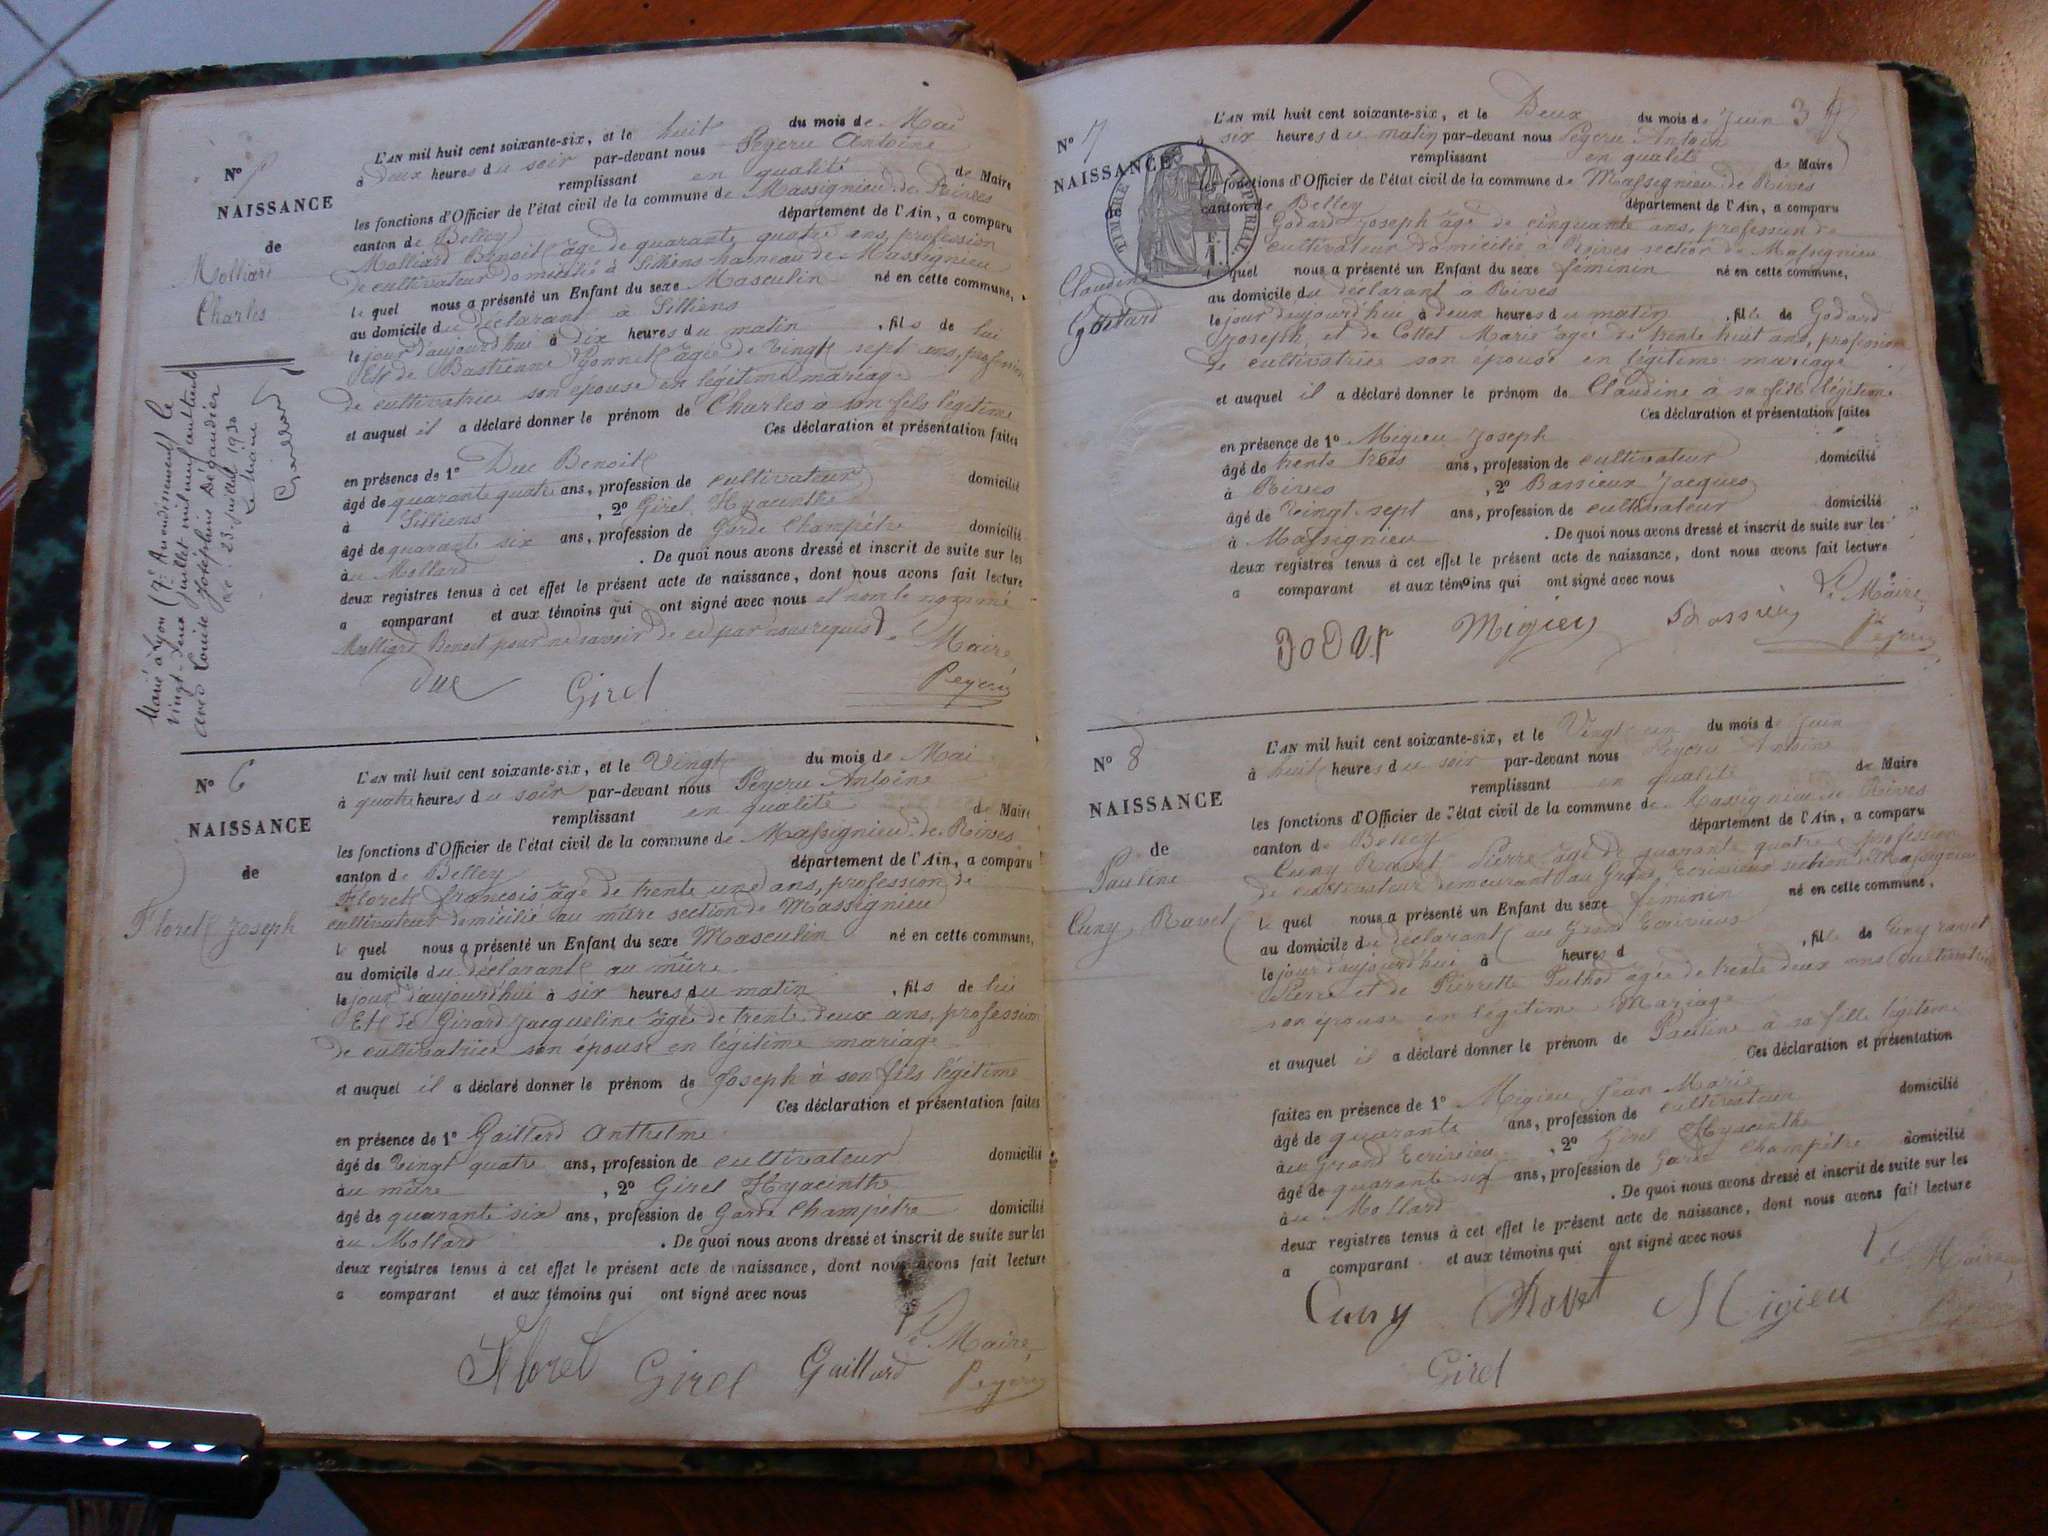 L'AN mil huit cent soixante-six, et le huit du mois de Mai
à deux heures du soir par-devant nous Peycru Antoine
remplissant en qualité de Maire
les fonctions d'Officier de l'état civil de la commune de Massignieu de Rives
canton de Belley département de l'Ain, a comparu
Molliard Benoit âgé de quarante quatre ans, profession
de cultivateur domicilié à Silliens hameau de Massignieu
le quel nous a présenté un Enfant du sexe Masculin né en cette commune,
au domicile du déclarant à Silliens
le jour d'aujourd'hui à dix heures du matin, fils de lui
Et de Bastienne Yonnet âgée de vingt sept ans, profession
de cultivatrice son épouse en légitime mariage
et auquel il a déclaré donner le prénom de Charles a son fils légitime
Ces déclaration et présentation faites
en présence de 1º Duc Benoit
âgé de quarante quatre ans, profession de cultivateur domicilié
à Silliens, 2º Girel Hyacinthe
âgé de quarante six ans, profession de Garde Champêtre domicilié
au Mollard. De quoi nous avons dressé et inscrit de suite sur les
deux registres tenus à cet effet le présent acte de naissance, dont nous avons fait lecture
a comparant et aux témoins qui ont signé avec nous et non le nommé
Molliard Benoit pour ne savoir de ce par nous requis
Le Maire,
Duc Girel Peycru
Nº
NAISSANCE
de
Molliard
Charles
Marié à Lyon (7e Arrondissement) le
vingt-deux Juillet mil neuf cent trente
avec Louise Joséphine Dégaudier
le 23 juillet 1930
Le Maire
Nº 6
NAISSANCE
de
Floret Joseph
L'AN mil huit cent soixante-six, et le Vingt du mois de Mai
à quatre heures du soir par-devant nous Peycru Antoine
remplissant en qualité de Maire
les fonctions d'Officier de l'état civil de la commune de Massignieu de Rives
canton de Belley département de l'Ain, a comparu
Floret françois âgé de trente un ans, profession de
cultivateur domicilié au mûre section de Massignieu
le quel nous a présenté un Enfant du sexe Masculin né en cette commune,
au domicile du déclarant au mûre
le jour d'aujourd'hui à six heures du matin, fils de lui
Et de Girard Jacqueline âgée de trente deux ans, profession
de cultivatrice son épouse en légitime mariage
et auquel il a déclaré donner le prénom de Joseph à son fils légitime
Ces déclaration et présentation faites
en présence de 1º Gaillard Anthelme
âgé de vingt quatre ans, profession de cultivateur domicilié
au mûre, 2º Girel Hyacinthe
âgé de quarante six ans, profession de Garde Champêtre domicilié
au Mollard. De quoi nous avons dressé et inscrit de suite sur les
deux registres tenus à cet effet le présent acte de naissance, dont nous avons fait lecture
a comparant et aux témoins qui ont signé avec nous
Le Maire,
Floret Girel Gaillard Peycru
3
Nº 7
NAISSANCE
TIMBRE IMPÉRIAL
Claudine
Godard
L'AN mil huit cent soixante-six, et le Deux du mois de Juin
six heures du matin par-devant nous Peycru Antoine
remplissant en qualité de Maire
les fonctions d'Officier de l'état civil de la commune de Massignieu de Rives
canton de Belley département de l'Ain, a comparu
Godard Joseph âgé de cinquante ans, profession de
cultivateur domicilié à Rives section de Massignieu
le quel nous a présenté un Enfant du sexe féminin né en cette commune,
au domicile du déclarant à Rives
le jour d'aujourd'hui à deux heures du matin, fille de Godard
Joseph, et de Cottet Marie âgée de trente huit ans, profession
de cultivatrice son épouse en légitime mariage
et auquel il a déclaré donner le prénom de Claudine à sa fille légitime
Ces déclaration et présentation faites
en présence de 1º Migieu Joseph
âgé de trente trois ans, profession de cultivateur domicilié
à Rives, 2º Bassieux Jacques
âgé de vingt sept ans, profession de cultivateur domicilié
à Massignieu. De quoi nous avons dressé et inscrit de suite sur les
deux registres tenus à cet effet le présent acte de naissance, dont nous avons fait lecture
a comparant et aux témoins qui ont signé avec nous
Le Maire,
Migieu Peycru
Nº 8
NAISSANCE
de
Pauline
Cuny Ravet
L'AN mil huit cent soixante-six, et le Vingt un du mois de Juin
à huit heures du soir par-devant nous Peycru Antoine
remplissant en qualité de Maire
les fonctions d'Officier de l'état civil de la commune de Massignieu de Rives
canton de Belley département de l'Ain, a comparu
Cuny Ravet Pierre âgé de quarante quatre profession
de cultivateur demeurant au Grand Ecrivieu section de Massignieu
le quel nous a présenté un Enfant du sexe féminin né en cette commune,
au domicile du déclarant au Grand Ecrivieu
le jour d'aujourd'hui à heures d, fille de Cuny ravet
Pierre et de Pierrette âgée de trente deux ans cultivatrice
son épouse en légitime Mariage
et auquel il a déclaré donner le prénom de Pauline à sa fille légitime
Ces déclaration et présentation
faites en présence de 1º Migieu Jean Marie
âgé de quarante ans, profession de cultivateur domicilié
au Grand Ecrivieu, 2º Girel Hyacinthe
âgé de quarante six ans, profession de Garde Champêtre domicilié
au Mollard. De quoi nous avons dressé et inscrit de suite sur les
deux registres tenus à cet effet le présent acte de naissance, dont nous avons fait lecture
a comparant et aux témoins qui ont signé avec nous
Le Maire,
Cuny Ravet Migieu
Girel